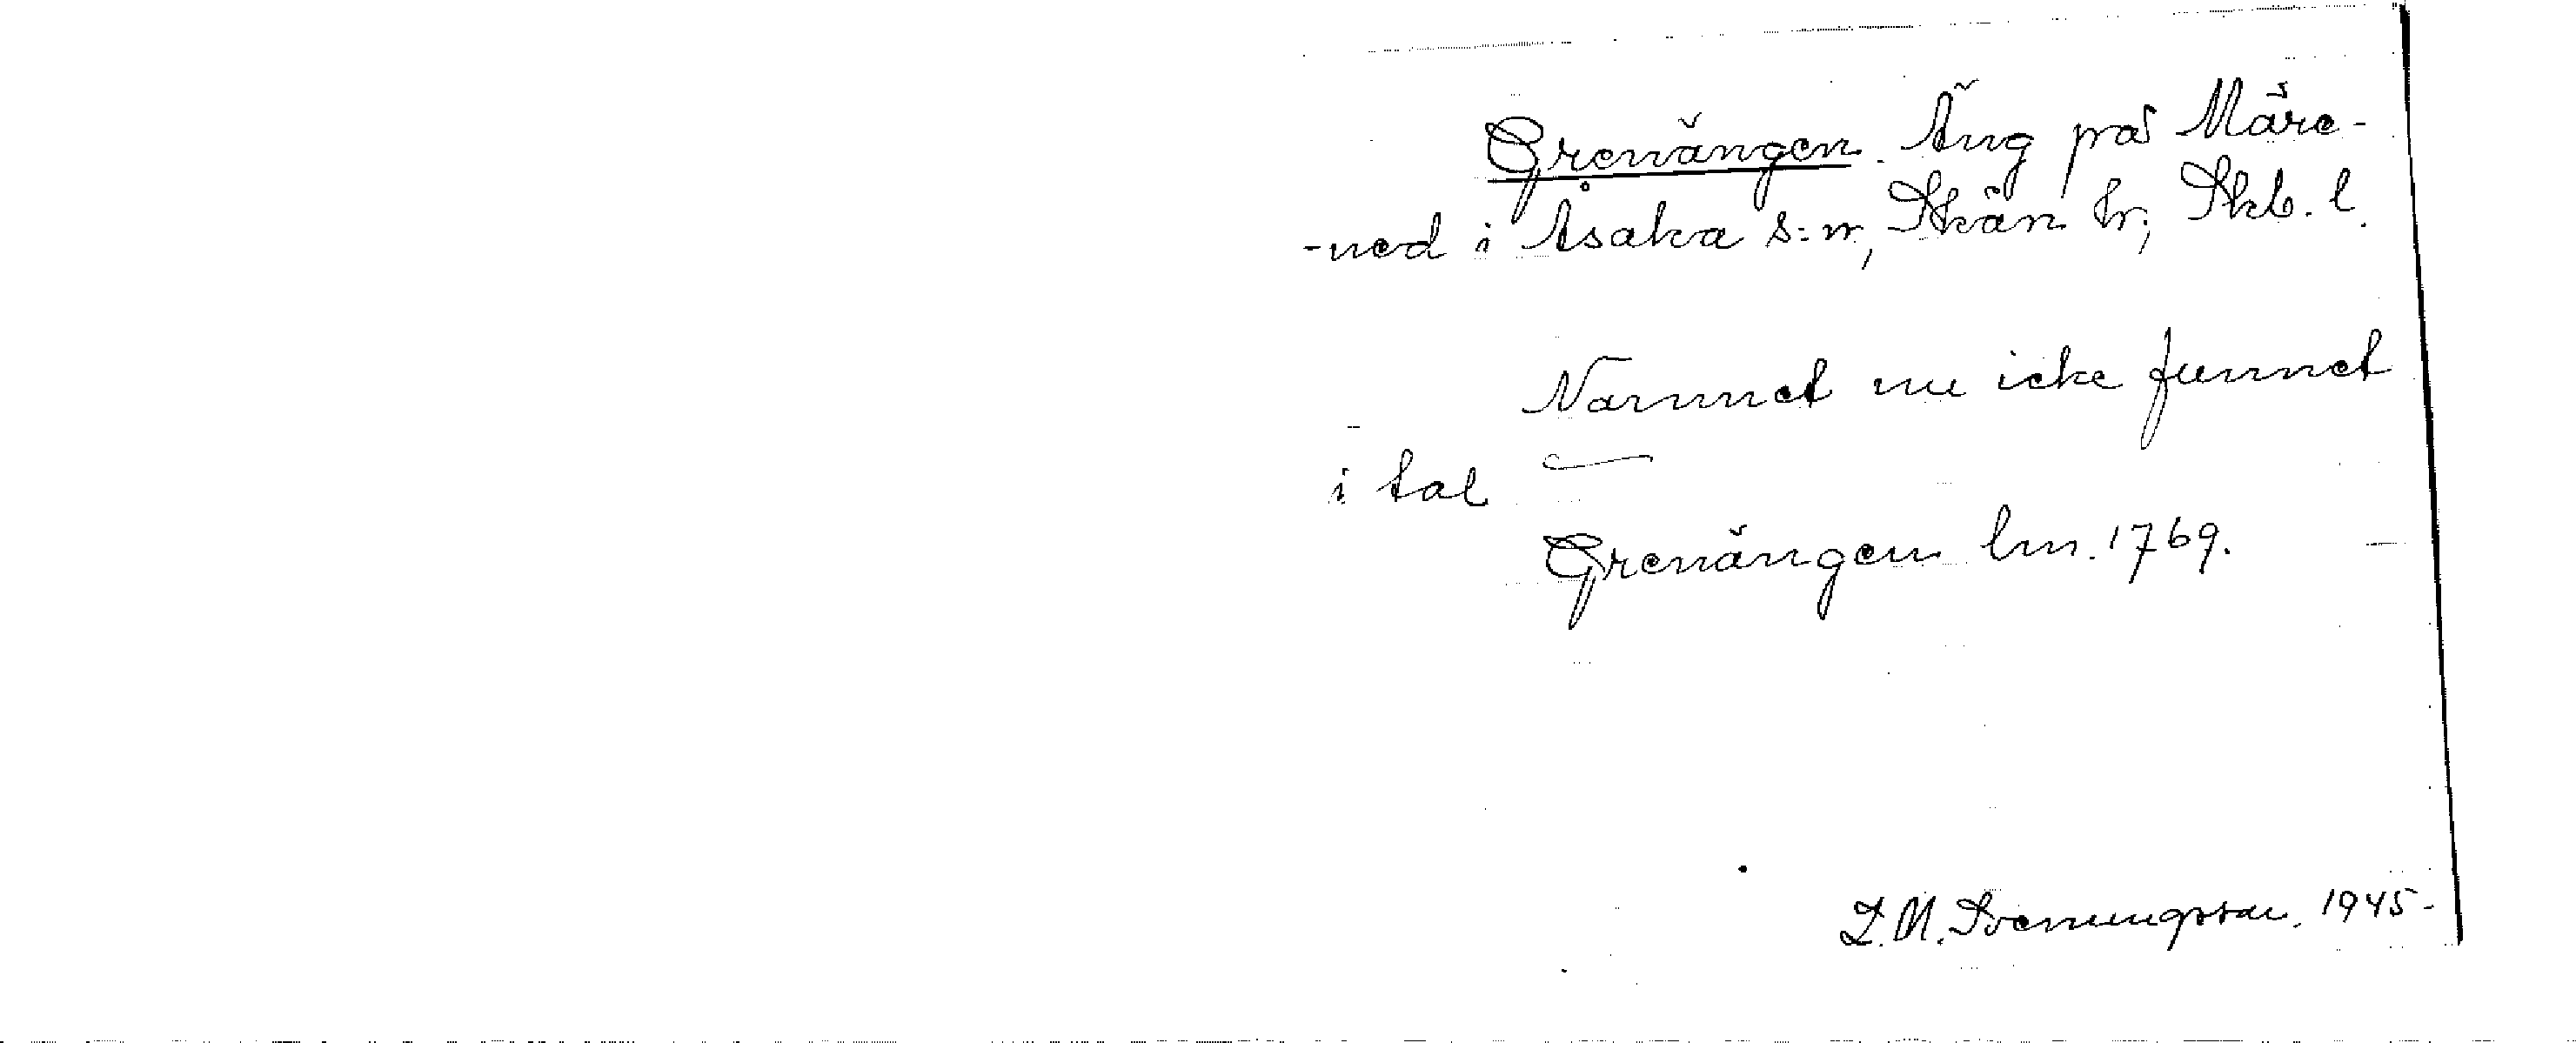 Grenängen. Äng på Märe-
-ned i Åsaka s:n, Skån hr; Skb. l.
Namnet nu icke funnet
i tal
Grenängen lm. 1769.
L. M. Svenungsson. 1945-